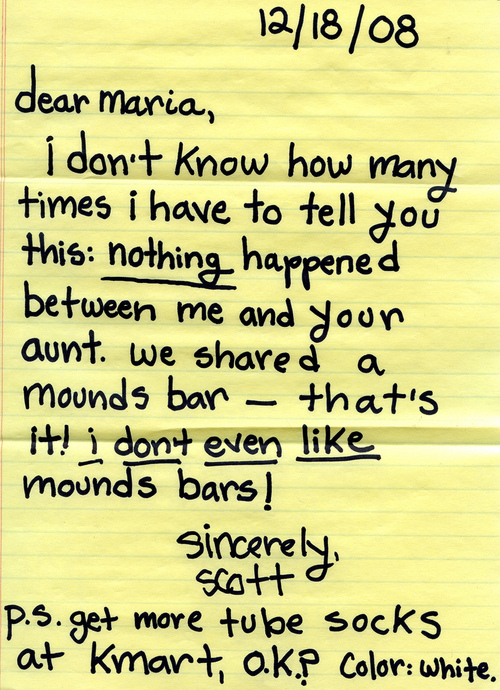 12/18/08
dear maria,
i don't know how many
times i have to tell you
this: nothing happened
between me and your
aunt. we shared a
mounds bar — that's
it! i dont even like
mounds bars!
sincerely,
scott
p.s. get more tube socks
at kmart, O.K.? Color: white.